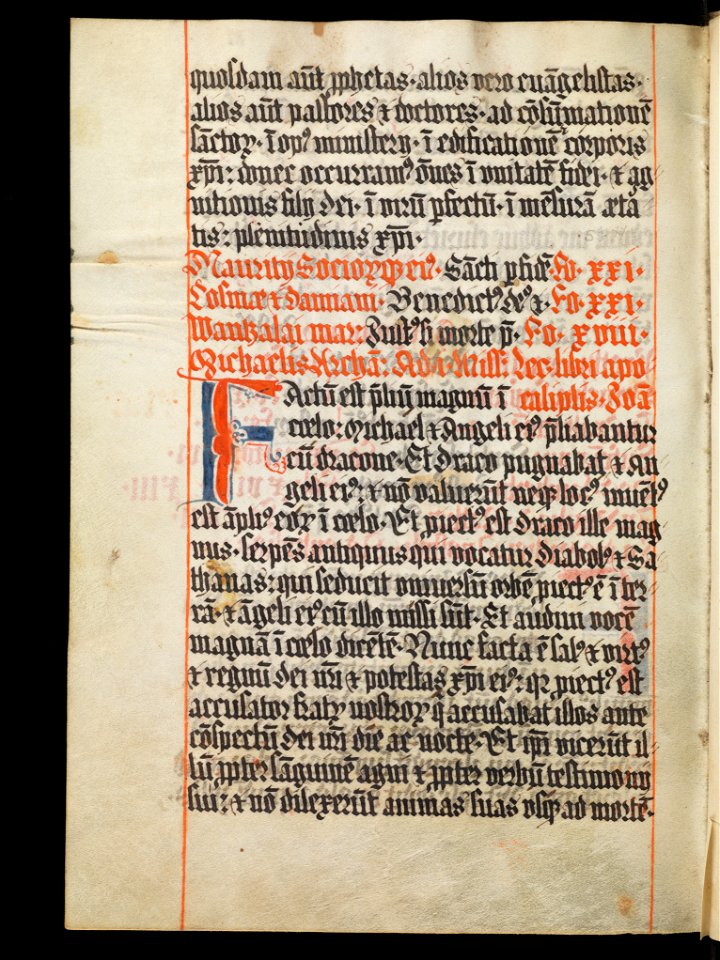 quosdam aūt ꝓphetas · alios vero euāgelistas ·
alios aūt pastores & doctores · ad cōsūmationē
sāctoꝝ · ī opꝰ ministerij · ī edificationē corporis
xp̄i : donec occurramꝰ ōnes ī vnitatē fidei · & ag
nitionis filij dei · ī virū ꝑfectū · ī mēsurā æta
tis : plenitudinis xp̄i ·
Mauritij Socioꝝqꝫ eiꝰ · Sācti ꝑ fidē Fo · xxi ·
Cosmæ & Damiani · Benedictꝰ deꝰ & · Fo · xxi ·
Wantzalai mar : Iustꝰ si morte p̄ · Fo · xviii ·
Michaelis Archā : Ad i · Miss : Lec · libri apo
Actū est p̄liū magnū ī caliptis · Joā
cœlo : Michael & Angeli eiꝰ p̄liabantur
cū dracone · Et Draco pugnabat & An
geli eiꝰ : & nō valuerūt neqꝫ locꝰ inuētꝰ
est āpliꝰ eoꝝ ī cœlo · Et ꝓiectꝰ est Draco ille mag
nus · serpēs antiquus qui vocatur Diabolꝰ & Sa
thanas : qui seducit vniuersū orbē ꝓiectꝰ ē ī ter
rā · & āgeli eiꝰ cū illo missi sūt · Et audiui vocē
magnā ī cœlo dicētē · Nunc facta ē salꝰ & virtꝰ
& regnū dei nr̄i & potestas xp̄i eiꝰ : qꝛ ꝓiectꝰ est
accusator fratꝝ nostroꝝ q̄ accusabat illos ante
cōspectū dei nr̄i die ac nocte · Et ip̄i vicerūt il
lū ꝓpter sāguinē agni & ꝓpter verbū testimonij
sui : & nō dilexerūt animas suas vsqꝫ ad mortē ·